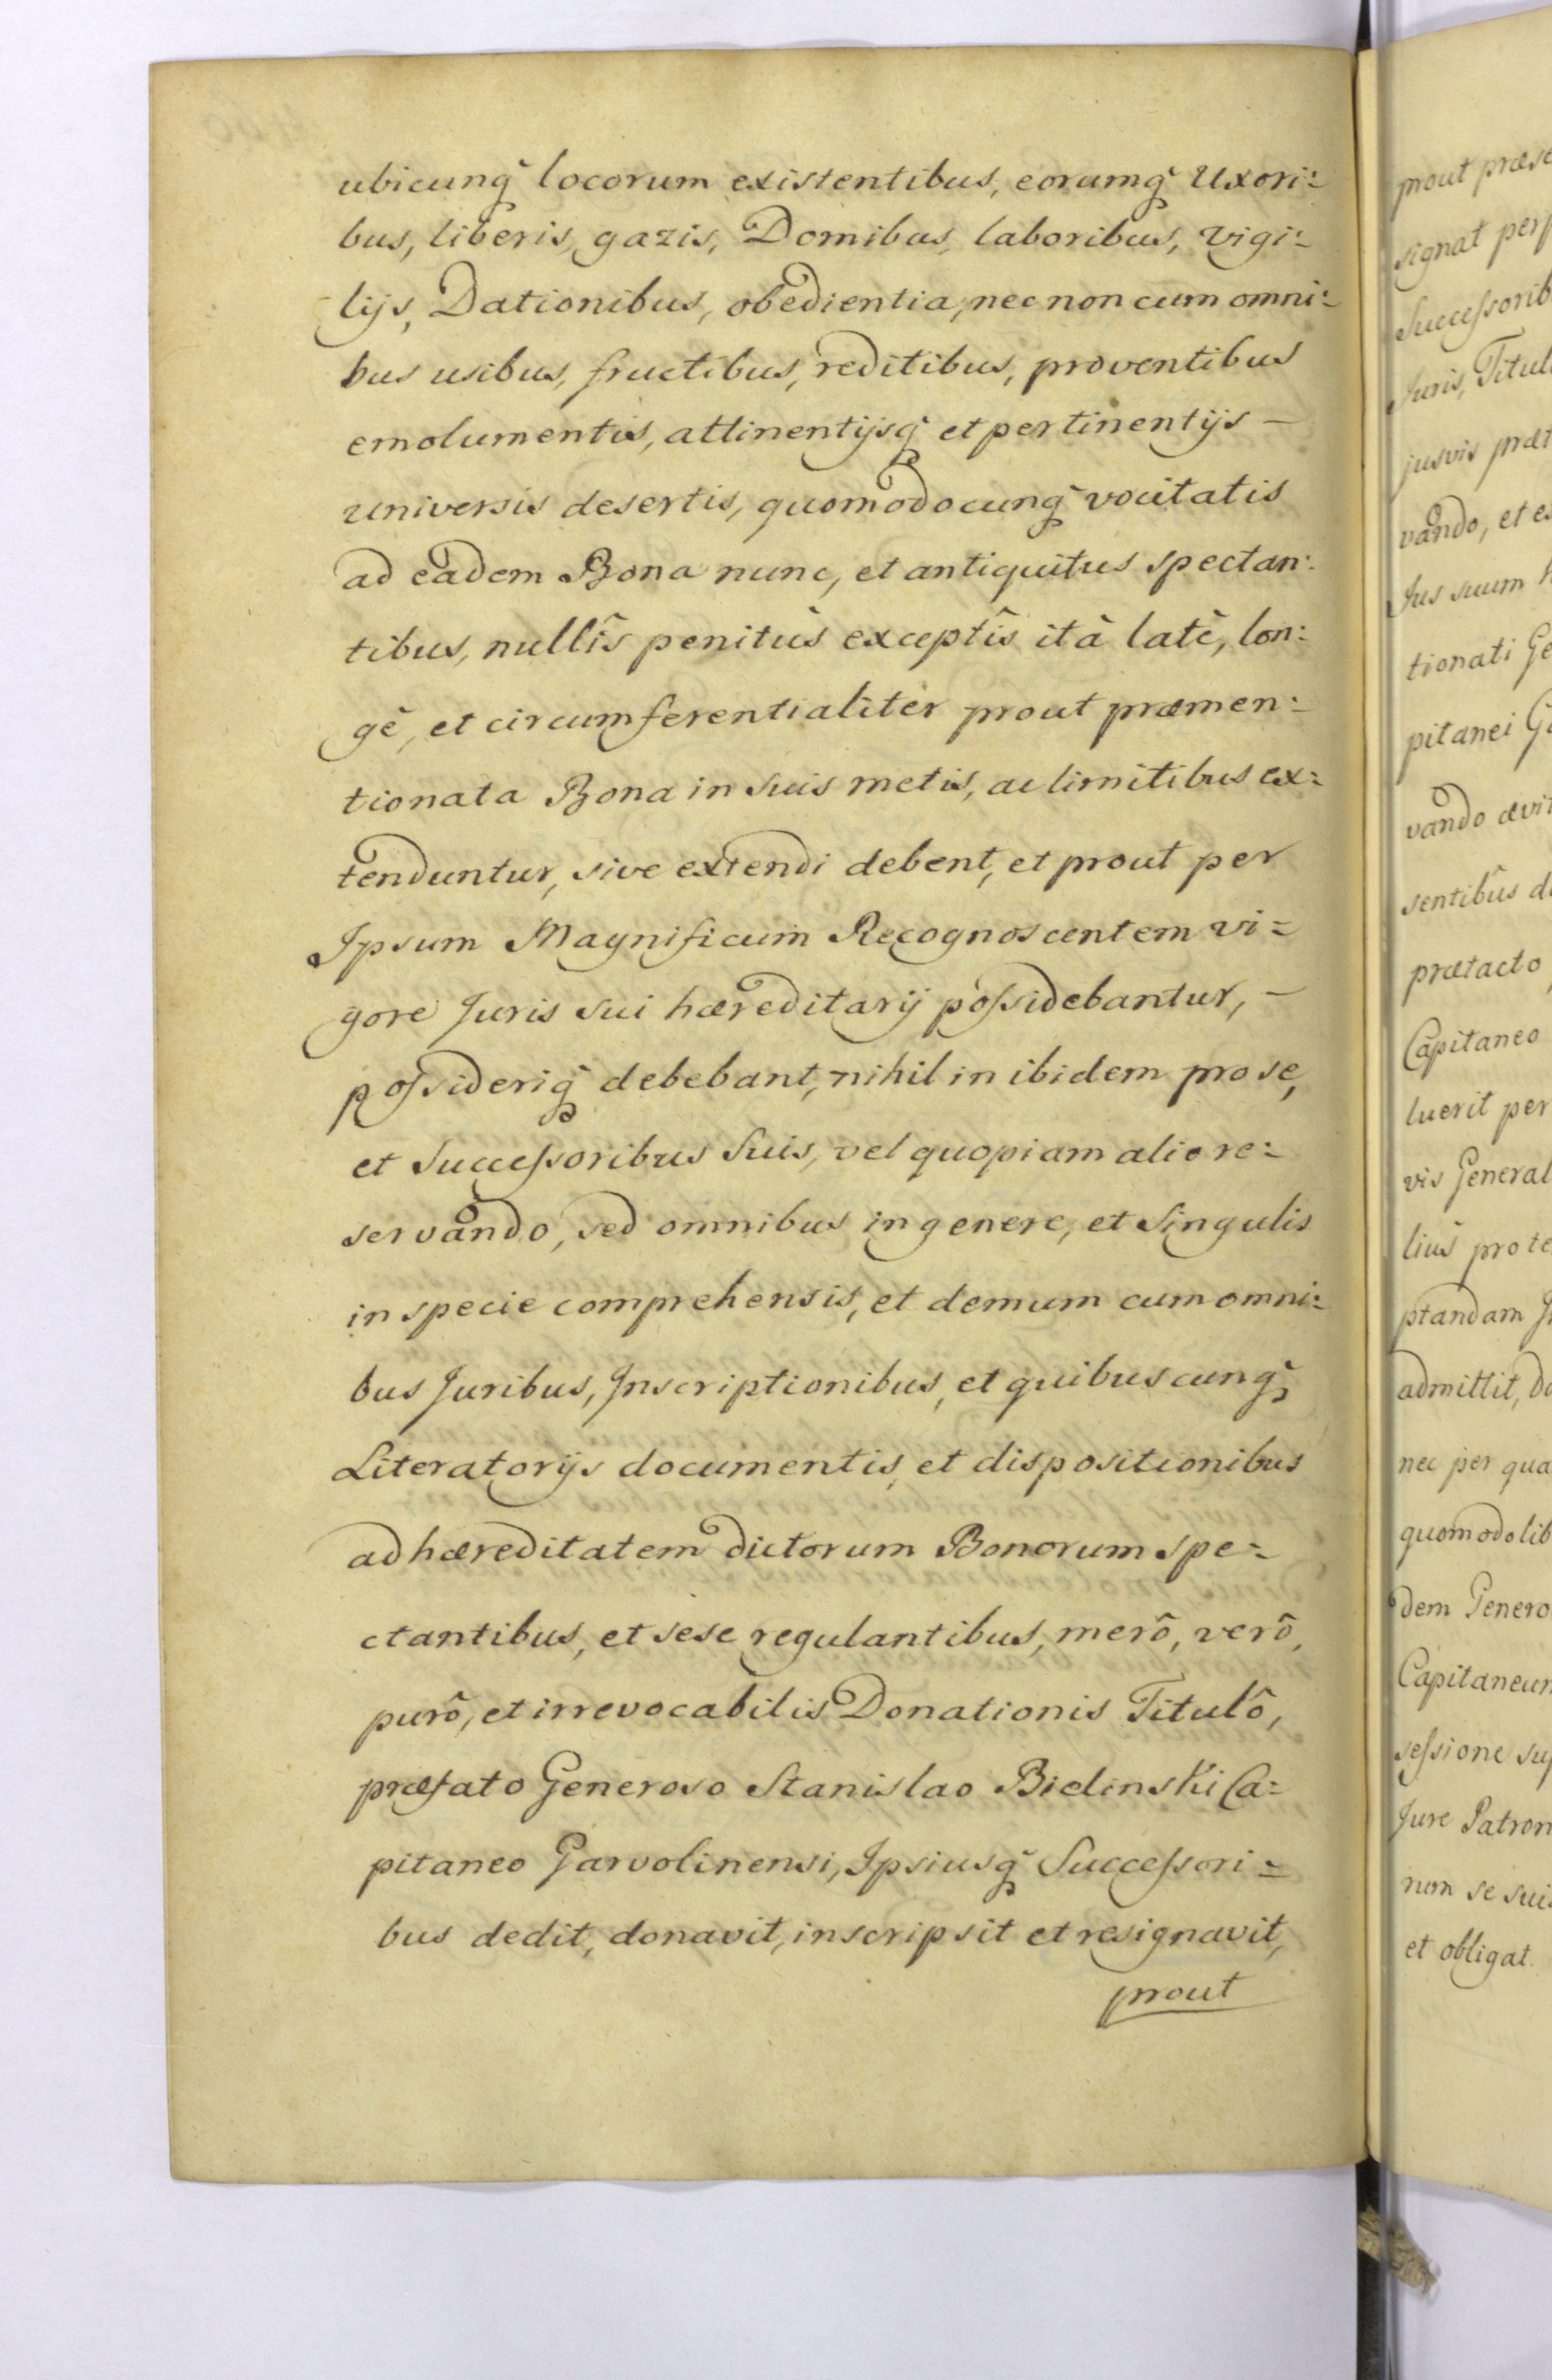 ubicunq̃ locorum existentibus, eorumq̃ Uxori:
bus, liberis, gazis, Domibus, laboribus, vigi:
lijs, Dationibus, obedientia, nec non cum omni:
bus usibus, fructibus, reditibus, proventibus
emolumentis, attinentijsq̃ et pertinentijs —
universis desertis, quomodocunq̃ vocitatis
ad eadem Bona nunc, et antiquitus spectan:
tibus, nullîs penitùs exceptîs ità latè, lon:
gè, et circumferentialiter prout præmen:
tionata Bona in suis metis, ac limitibus ex:
tenduntur, sive extendi debent, et prout per
Ipsum Magnificum Recognoscentem vi=
gore Juris sui hæreditarij possidebantur, —
possideriq̃ debebant, nihil in ibidem pro se,
et Successoribus Suis, vel quopiam alio re:
servando, sed omnibus in genere, et Singulis
in specie comprehensis, et demum cum omni:
bus Juribus, Inscriptionibus, et quibuscunq̃
Literatorijs documentis, et dispositionibus
ad hæreditatem dictorum Bonorum spe=
ctantibus, et sese regulantibus, merô, verô,
purô, et irrevocabilis Donationis Titulô,
præfato Generoso Stanislao Bielinski Ca:
pitaneo Garvolinensi, Ipsiusq̃ Successori=
bus dedit, donavit, inscripsit et resignavit,
prout
prout præse
signat perp
Successorib
Juris, Titul
jusvis præt
vando, et ex
Jus suum
tionati Ge
pitanei Ga
vando ævit
sentibus d
prætacto
Capitaneo
luerit per
vis General
lius prote
ptandam
admittit, Da
nec per qua
quomodolib
dem Genero
Capitaneum
sessione sup
Jure Patron
nom se suis
et obligat.